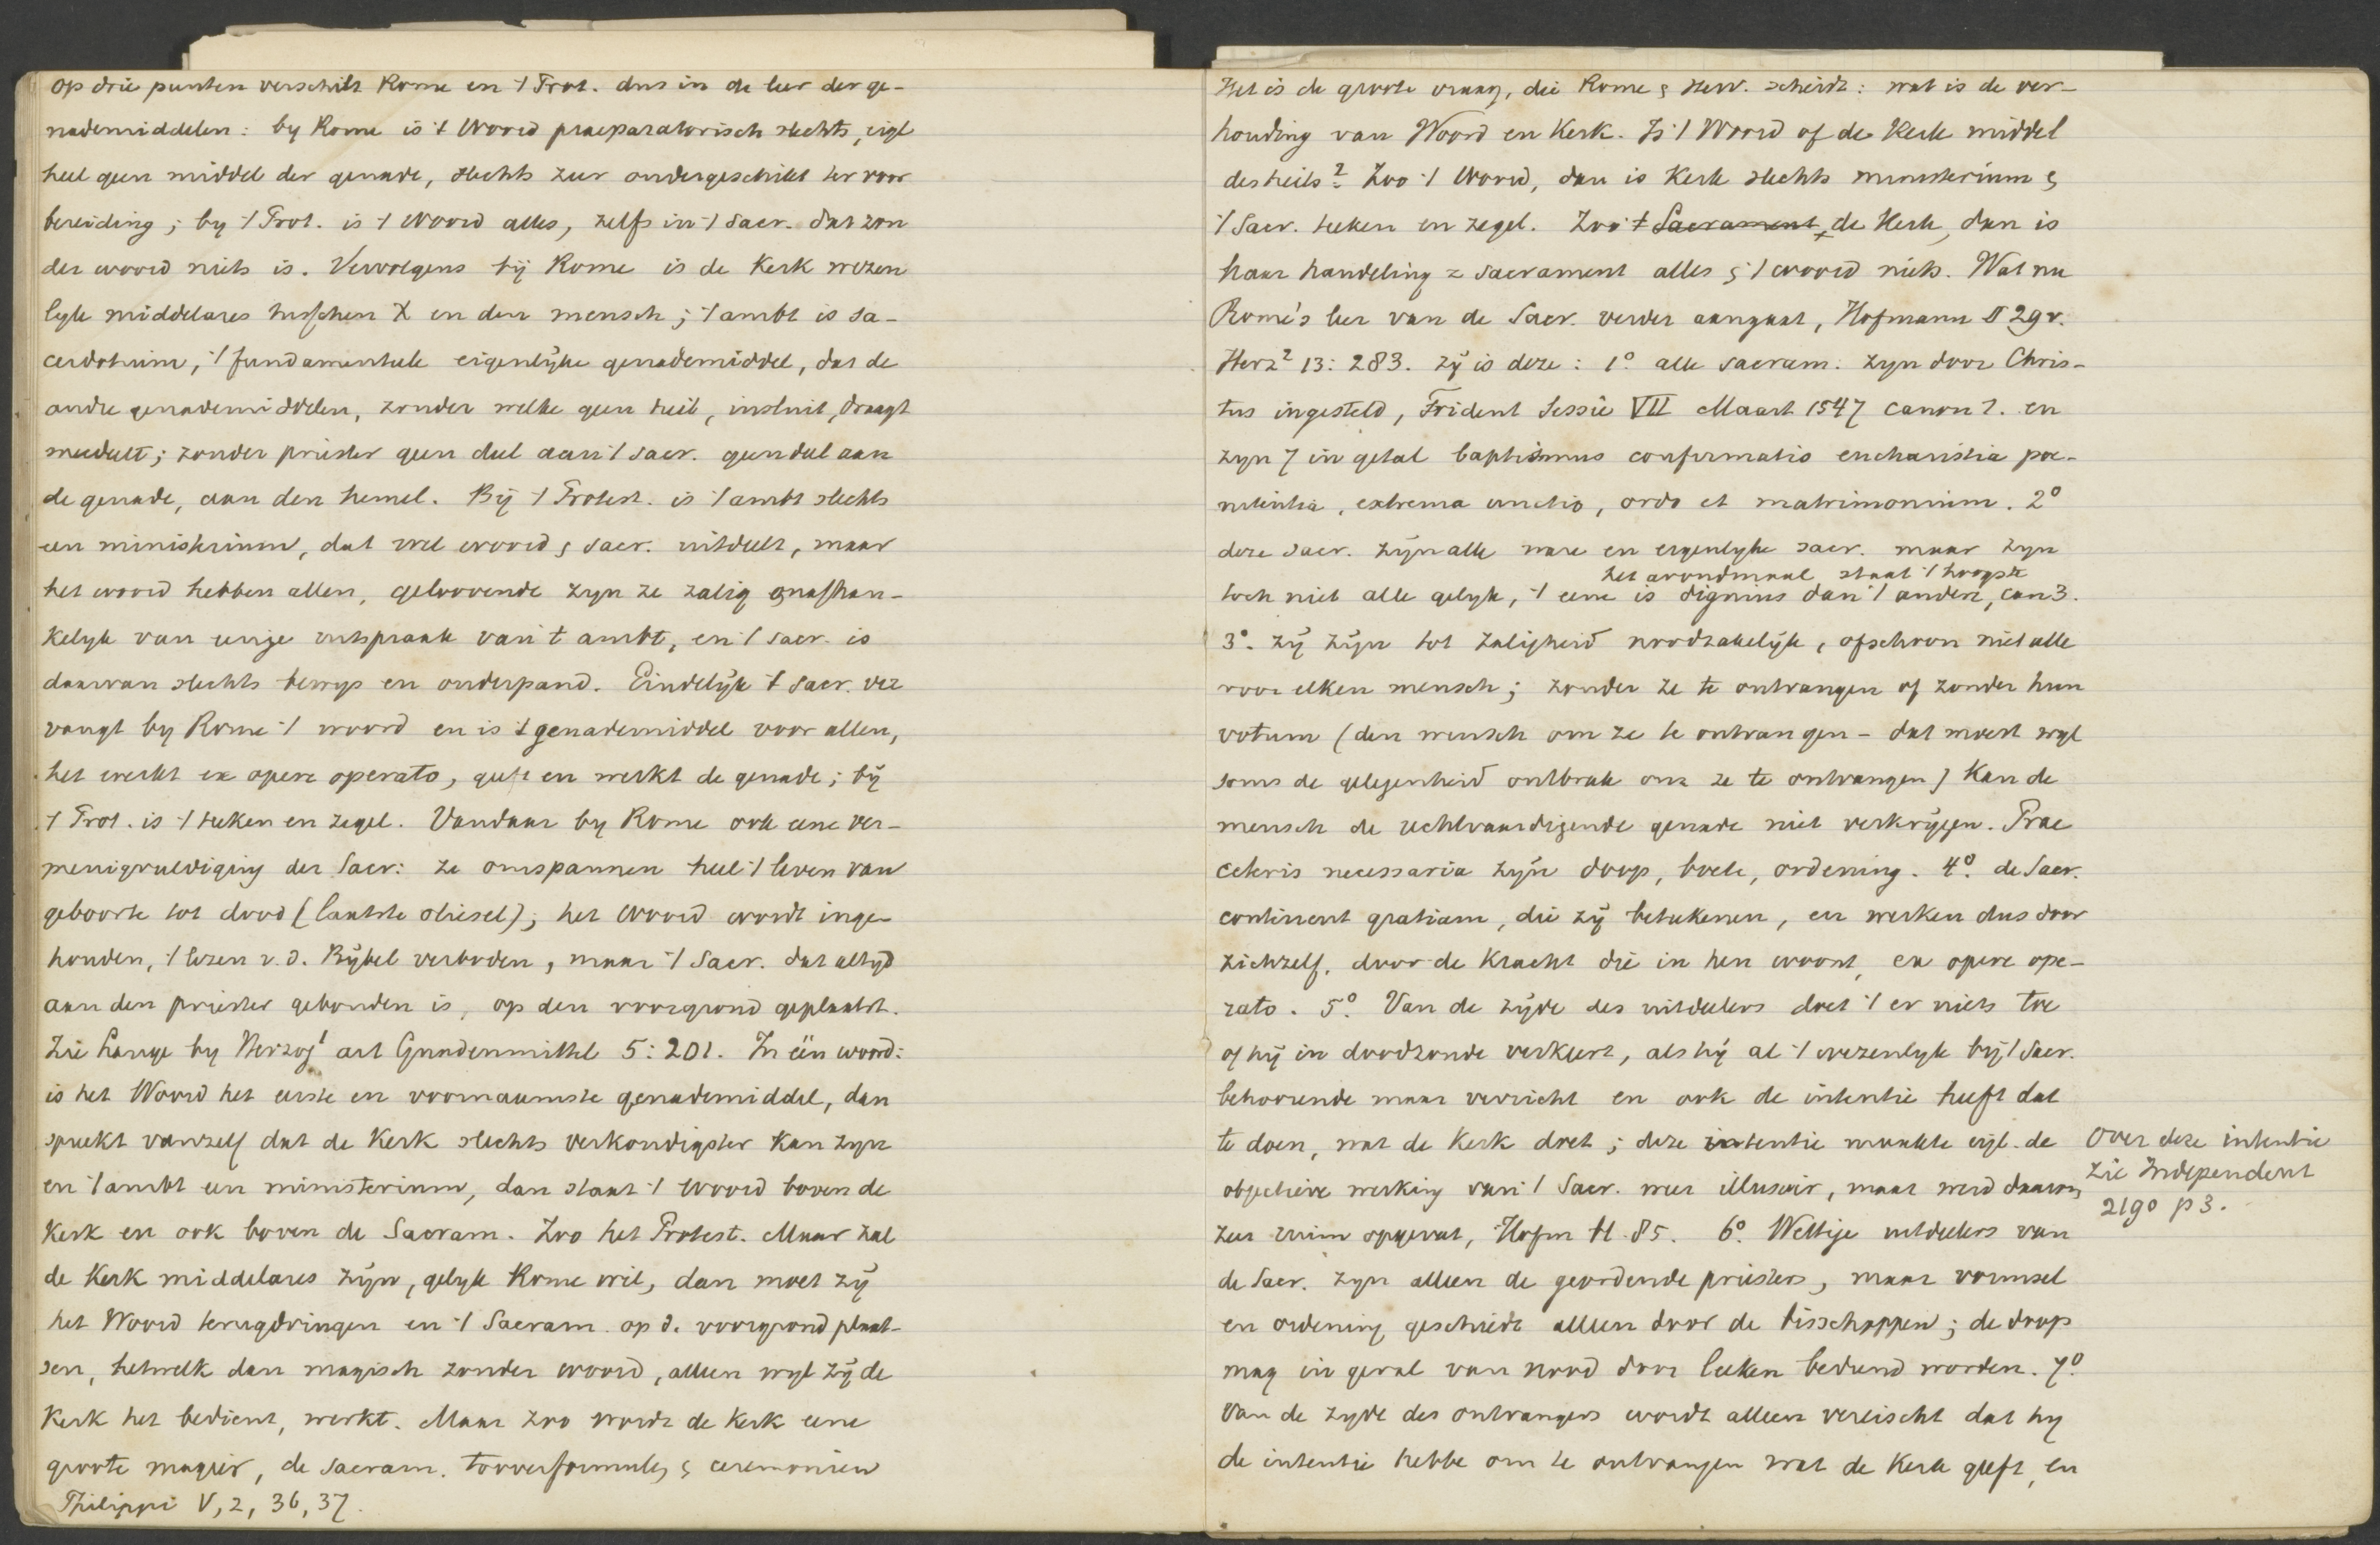 op drie punten verschilt Rome en 't Prot. dus in de leer der ge-
nademiddelen: by Rome is 't Woord praeparatorisch slechts, eigl
heel geen middel der genade, slechts zeer ondergeschikt ter voor
bereiding; by 't Prot. is 't Woord alles, zelfs in 't Sacr. dat zon
der woord niets is. Vervolgens bij Rome is de Kerk wezen
lyke middelares tusschen X en den mensch; 't ambt is sa-
cerdotium, 't fundamenteele eigenlijke genademiddel, dat de
andre genademiddelen, zonder welke geen heil, insluit, draagt
meedeelt; zonder priester geen deel aan 't sacr. geen deel aan
de genade, aan den hemel. Bij 't Protest. is 't ambt slechts
een ministerium, dat wel woord & sacr. uitdeelt, maar
het woord hebben allen, geloovende zyn ze zalig onafhan-
kelyk van eenige uitspraak van 't ambt, en 't sacr. is
daarvan slechts bewys en onderpand. Eindelijk 't sacr. ver
vangt by Rome 't woord en is 't genademiddel voor allen,
het werkt ex opere operato, geeft en werkt de genade; bij
't Prot. is 't teeken en zegel. Vandaar by Rome ook eene ver-
menigvuldiging der Sacr: ze omspannen heel 't leven van
geboorte tot dood (laatste oliesel); het Woord wordt inge-
houden, 't lezen v.d. Bijbel verboden, maar 't Sacr. dat altyd
aan den priester gebonden is, op den voorgrond geplaatst.
Zie Lange by Herzog¹ art Gnadenmittel 5:201. In één woord:
is het Woord het eerste en voornaamste genademiddel, dan
spreekt vanzelf dat de Kerk slechts verkondigster kan zyn
en 't ambt een ministerium, dan staat 't Woord boven de
Kerk en ook boven de Sacram. Zoo het Protest. Maar zal
de Kerk middelares zijn, gelyk Rome wil, dan moet zij
het Woord terugdringen en 't Sacram. op d. voorgrond plaat-
sen, hetwelk dan magisch zonder woord, alleen wyl zij de
Kerk het bedient, werkt. Maar zoo wordt de Kerk eene
groote magiër, de sacram. tooverformules & ceremoniën
Philippi V, 2, 36, 37.
Het is de groote vraag, die Rome & Herv. scheidt: wat is de ver-
houding van Woord en Kerk. Is 't Woord of de Kerk middel
des heils? Zoo 't Woord, dan is Kerk slechts ministerium &
't Sacr. teeken en zegel. Zoo 't Sacrament, de Kerk, dan is
haar handeling = sacrament alles & 't woord niets. Wat nu
Rome's leer van de Sacr. verder aangaat, Hofmann II 29 v.
Herz² 13:283. zij is deze: 1° alle sacram. zyn door Chris-
tus ingesteld, Trident Sessie VII Maart 1547 canon 1. en
zyn 7 in getal baptismus confirmatio eucharistia poe-
nitentia, extrema unctio, ordo et matrimonium. 2°
deze sacr. zijn alle ware en eigenlyke sacr. maar zyn
het avondmaal staat 't hoogste
toch niet alle gelyk, 't eene is dignius dan 't andere, can 3.
3°. zij zijn tot zaligheid noodzakelijk, ofschoon niet alle
voor elken mensch; zonder ze te ontvangen of zonder hun
votum (den wensch om ze te ontvangen - dat moest wyl
soms de gelegenheid ontbrak om ze te ontvangen) kan de
mensch de rechtvaardigende genade niet verkrijgen. Prae
ceteris necessaria zijn doop, boete, ordening. 4° de Sacr.
continent gratiam, die zij beteekenen, en werken dus door
zichzelf, door de kracht die in hen woont, ex opere ope-
rato. 5° Van de zijde des uitdeelers doet 't er niets toe
of hij in doodzonde verkeert, als hij al 't wezenlyk bij 't Sacr.
behoorende maar verricht en ook de intentie heeft dat
te doen, wat de Kerk doet; deze intentie maakte eigl. de
objectieve werking van 't Sacr. weer illusoir, maar werd daarom
zeer ruim opgevat, Hofm II 85. 6° Wettige uitdeelers van
de Sacr. zyn alleen de geordende priesters, maar vormsel
en ordening geschiedt alleen door de bisschoppen; de doop
mag in geval van nood door leeken bediend worden. 7°
Van de zyde des ontvangers wordt alleen vereischt dat hy
de intentie hebbe om te ontvangen wat de Kerk geeft, en
Over deze intentie
zie Independent
2190 p 3.